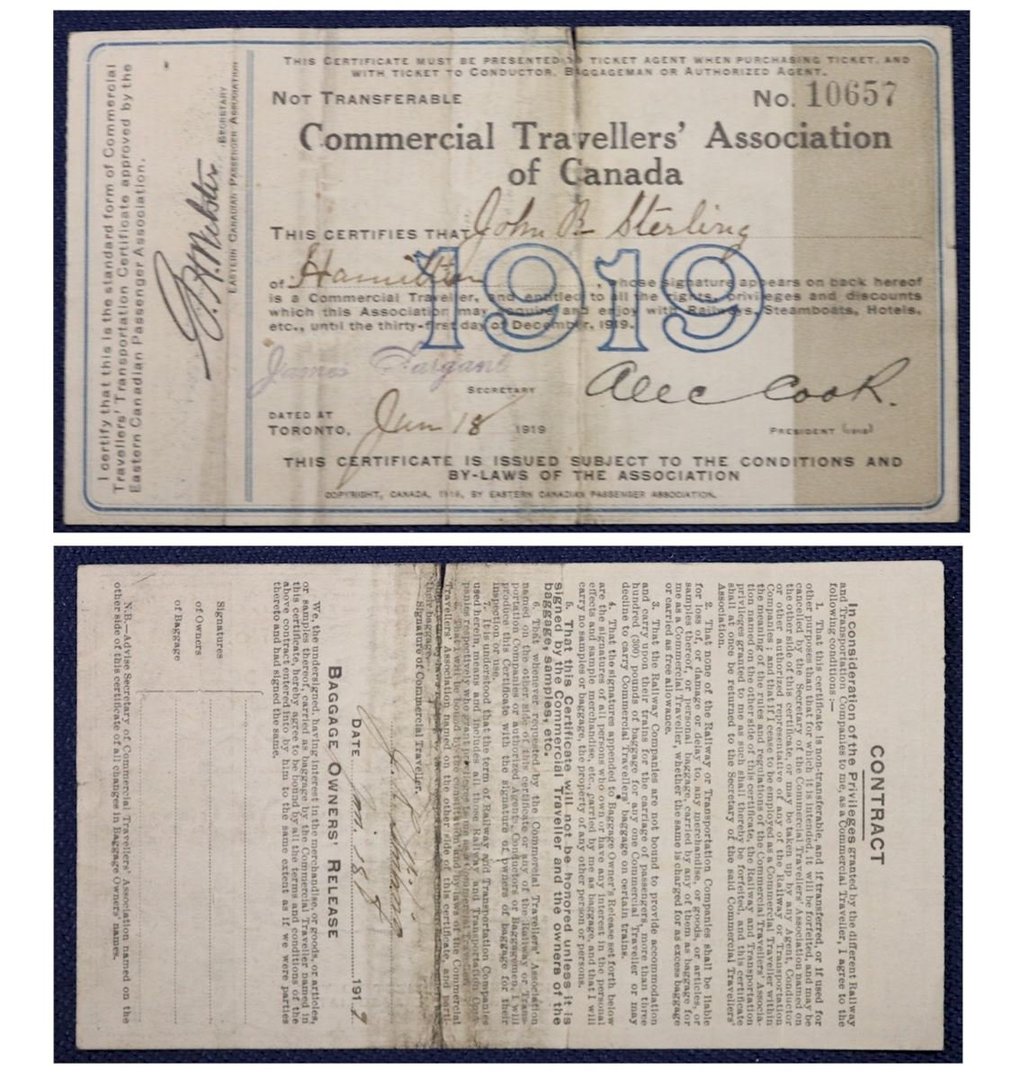 THIS CERTIFICATE MUST BE PRESENTED TO TICKET AGENT WHEN PURCHASING TICKET, AND
WITH TICKET TO CONDUCTOR, BAGGAGEMAN OR AUTHORIZED AGENT.
NOT TRANSFERABLE
No. 10657
Commercial Travellers' Association
of Canada
THIS CERTIFIES THAT John B Sterling
of Hamilton, whose signature appears on back hereof
is a Commercial Traveller, and entitled to all the rights, privileges and discounts
which this Association may acquire and enjoy with Railways, Steamboats, Hotels,
etc., until the thirty-first day of December, 1919.
1919
James Sargant
SECRETARY
Alec Cook.
PRESIDENT (1919)
DATED AT
TORONTO, Jun 18 1919
THIS CERTIFICATE IS ISSUED SUBJECT TO THE CONDITIONS AND
BY-LAWS OF THE ASSOCIATION
COPYRIGHT, CANADA, 1919, BY EASTERN CANADIAN PASSENGER ASSOCIATION.
I certify that this is the standard form of Commercial
Travellers' Transportation Certificate approved by the
Eastern Canadian Passenger Association.
G. H. Webster
SECRETARY
EASTERN CANADIAN PASSENGER ASSOCIATION
CONTRACT
In Consideration of the Privileges granted by the different Railway
and Transportation Companies to me, as a Commercial Traveller, I agree to the
following conditions:—
1. That this certificate is non-transferable, and if transferred, or if used for
other purposes than that for which it is intended, it will be forfeited, and may be
cancelled by the Secretary of the Commercial Travellers' Association named on
the other side of this certificate, or may be taken up by any Agent, Conductor
or other authorized representative of any of the Railway or Transportation
Companies; and that if I cease to be employed as a Commercial Traveller within
the meaning of the rules and regulations of the Commercial Travellers' Associa-
tion named on the other side of this certificate, the Railway and Transportation
privileges granted to me as such shall thereby be forfeited, and this certificate
shall at once be returned to the Secretary of the said Commercial Travellers'
Association.
2. That none of the Railway or Transportation Companies shall be liable
for loss of, or damage or delay to, any merchandise, or goods, or articles, or
samples thereof, or personal baggage, carried by any of them as baggage for
me as a Commercial Traveller, whether the same is charged for as excess baggage
or carried as free allowance.
3. That the Railway Companies are not bound to provide accommodation
and carry upon their trains for the carriage of passengers, more than three
hundred (300) pounds of baggage for any one Commercial Traveller or may
decline to carry Commercial Travellers' baggage on certain trains.
4. That the signatures appended to Baggage Owner's Release set forth below
are the signatures of all persons who own or have any interest in the personal
effects and sample merchandise, etc., carried by me as baggage, and that I will
carry no samples or baggage, the property of any other person or persons.
5. That this Certificate will not be honored unless it is
signed by the Commercial Traveller and the owners of the
baggage, samples, etc.
6. That whenever requested by the Commercial Travellers' Association
named on the other side of this certificate or any of the Railway or Trans-
portation Companies or authorized Agents, Conductors or Baggagemen, I will
produce this Certificate with the signature of owners of baggage for their
inspection or use.
7. It is understood that the term of Railway and Transportation Companies
used herein, means and includes all those Railway and Transportation Com-
panies respectively who grant privileges to me as a Commercial Traveller.
8. That I will be bound by the constitution and by-laws of the Commercial
Travellers' Association named on the other side of this certificate, and
their baggage.
Signature of Commercial Traveller.
DATE 1919
BAGGAGE OWNERS' RELEASE
We, the undersigned, having interest in the merchandise, or goods, or articles,
or samples thereof, carried as baggage by the Commercial Traveller named in
this certificate, hereby agree to be bound by all the terms and conditions of the
above contract entered into by him to the same extent as if we were parties
thereto and had signed the same.
Signatures
of Owners
of Baggage
N.B.—Advise Secretary of Commercial Travellers' Association, named on the
other side of this certificate of all changes in Baggage Owners' names.